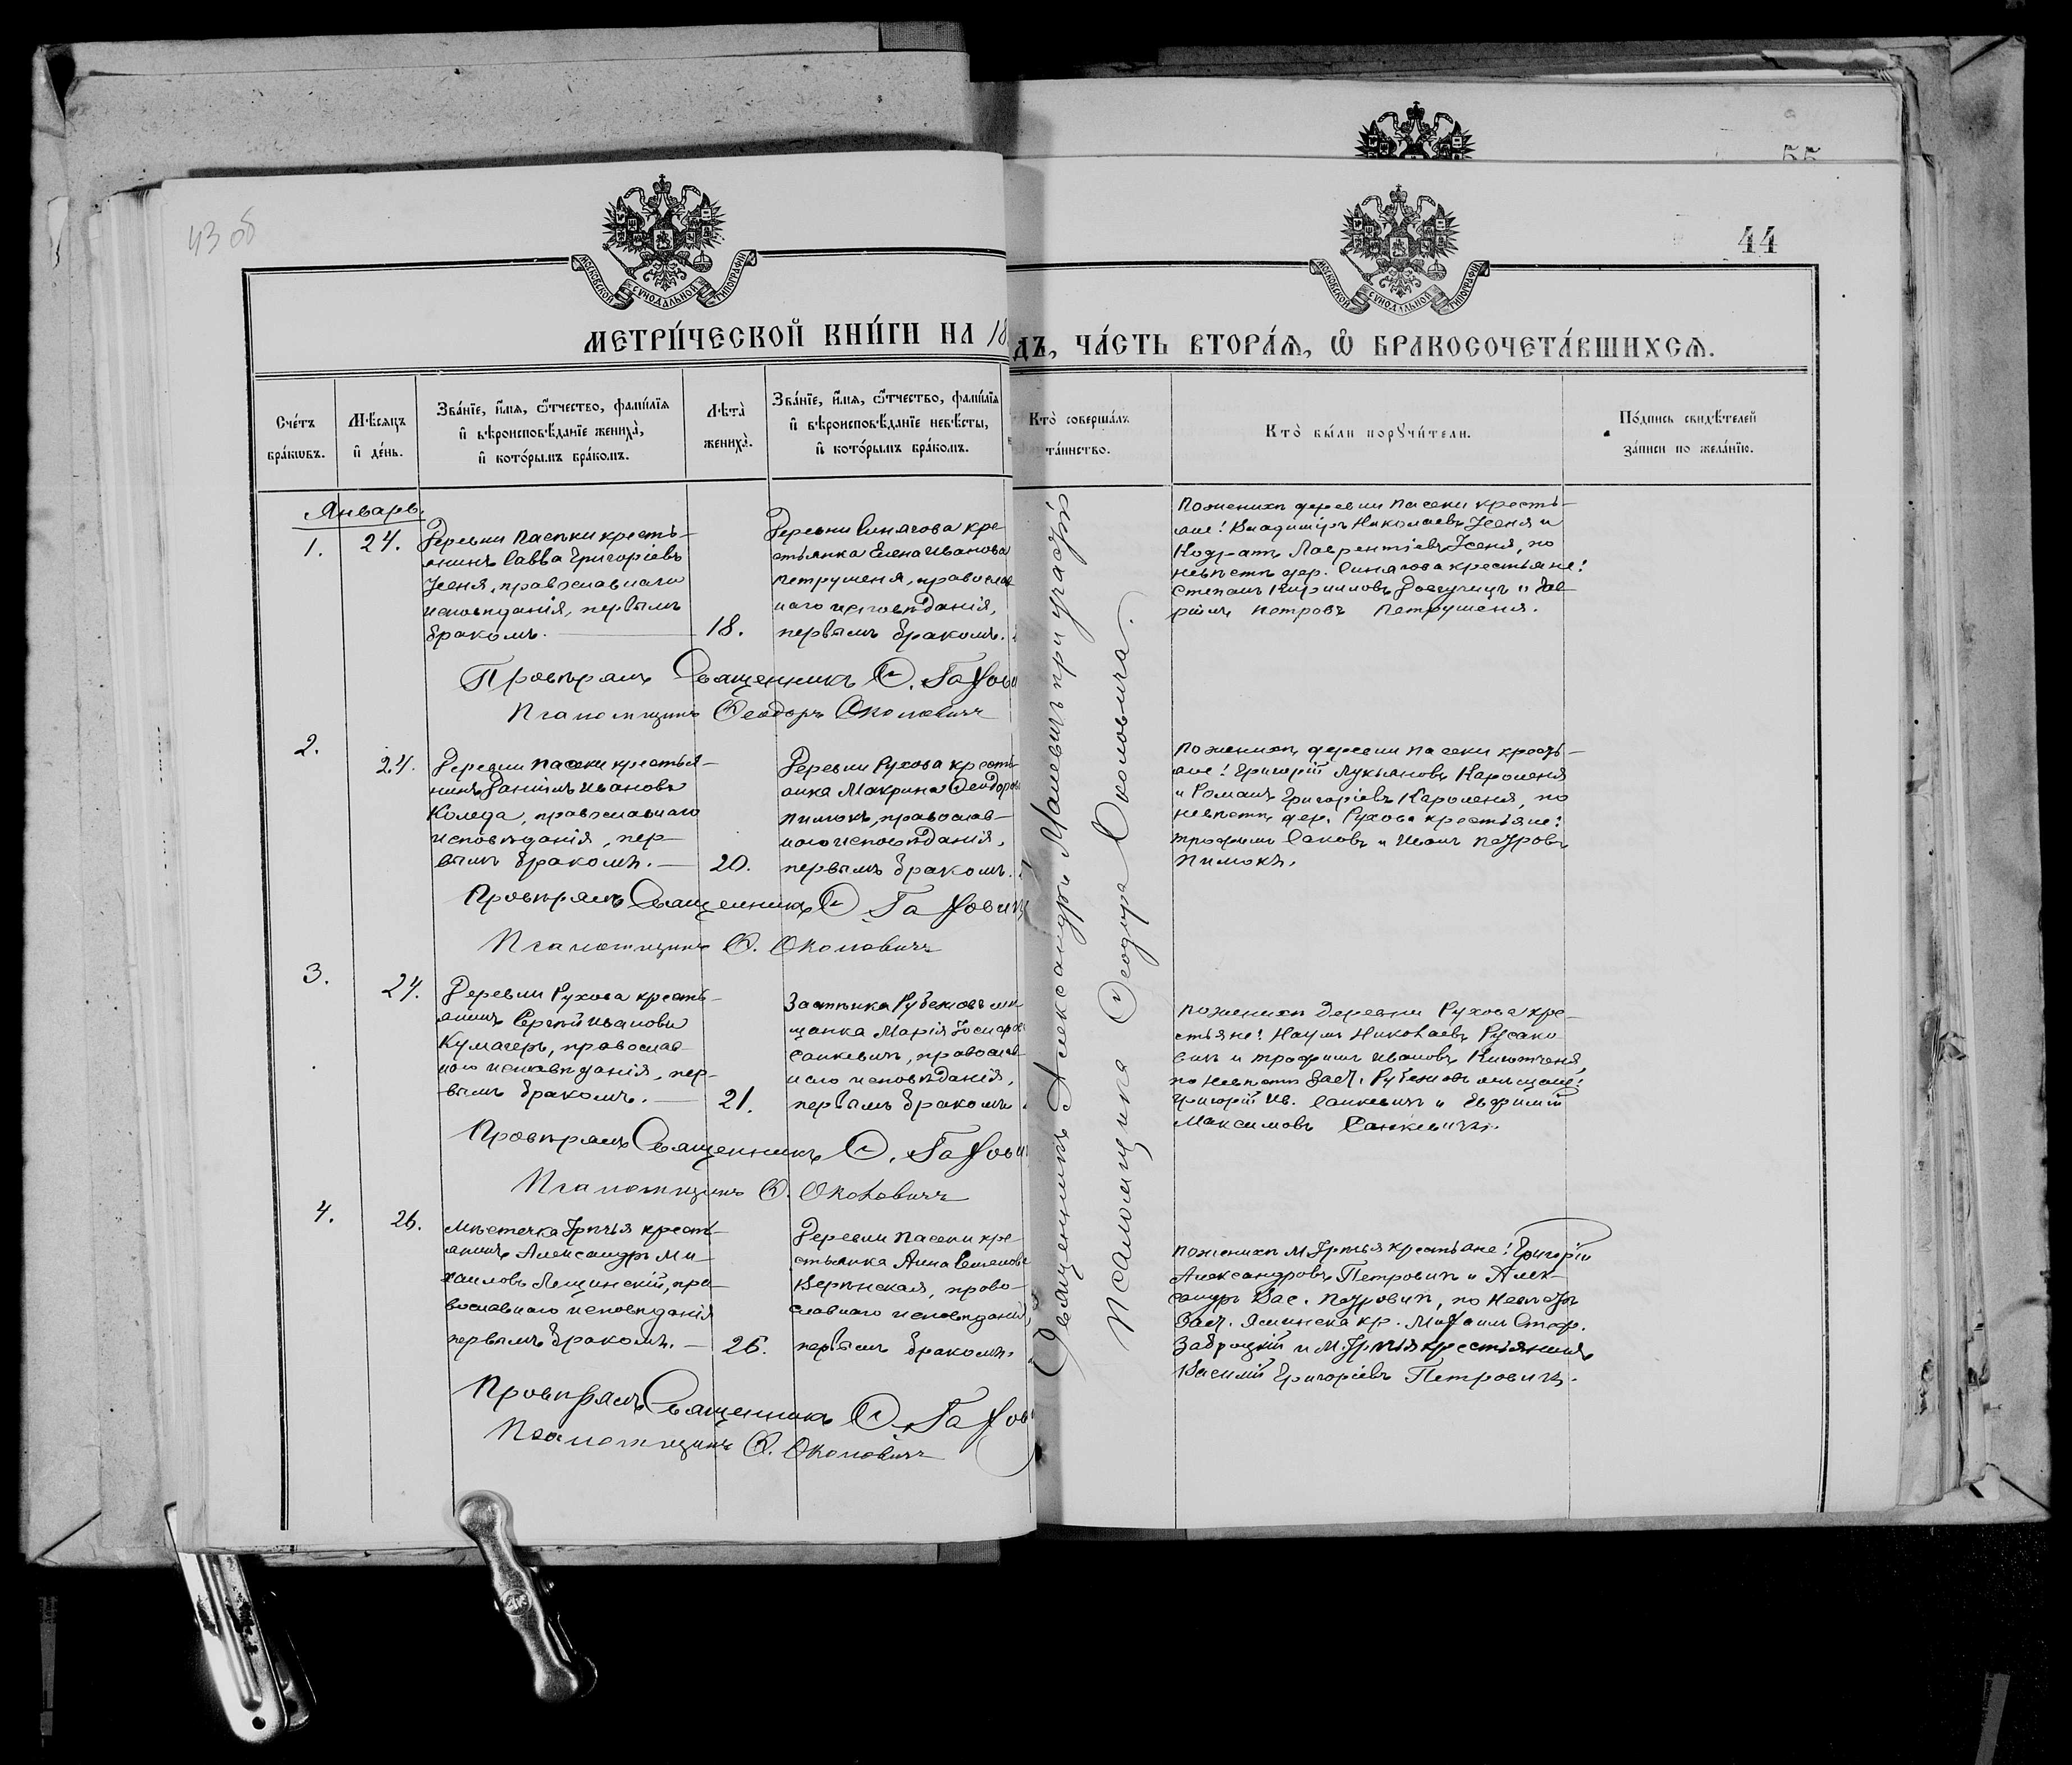 43 об
55
44
МОСКОВСКОЙ СѴНОДАЛЬНОЙ ТИПОГРАФІИ
МОСКОВСКОЙ СѴНОДАЛЬНОЙ ТИПОГРАФІИ
МЕТРИ́ЧЕСКОЙ КНИ́ГИ НА 18
ДЪ, ЧА́СТЬ ВТОРА́Ѧ, Ѽ БРАКОСОЧЕТА́ВШИХСѦ.
Сче́тъ
бра́кѡвъ.
Мѣсяцъ
и҆ де́нь.
Зва́нїе, и҆́мя, ѻ҆́тчество, фами́лїя
и҆ вѣроисповѣ́данїе жениха̀,
и҆ кото́рымъ бра́комъ.
Лѣта̀
жениха̀.
Зва́нїе, и҆́мя, ѻ҆́тчество, фами́лїя
и҆ вѣроисповѣ́данїе невѣ́сты,
и҆ кото́рымъ бра́комъ.
Кто̀ соверша́лъ
та́инство.
Кто̀ бы́ли порꙋчи́тели.
По́дпись свидѣ́телей
за́писи по жела́нїю.
Январь.
1.
24.
Деревни Пасѣки кресть-
янинъ Савва Григоріевъ
Усеня, православнаго
исповѣданія, первымъ
бракомъ.
18.
Деревни Синягова кре-
стьянка Елена Иванова
Петрушеня, православ
наго исповѣданія,
первымъ бракомъ.
По женихѣ деревни Пасеки кресть-
яне: Владиміръ Николаевъ Усеня и
Кодратъ Лаврентіевъ Усеня, по
невѣстѣ дер. Синягова крестьяне:
Степанъ Кирилловъ и Гав
ріилъ Петровъ Петрушеня.
Провѣрялъ Священникъ С.
Псаломщикъ Ѳеодоръ Околовичъ
2.
24.
Деревни Пасеки крестья-
нинъ Даніилъ Ивановъ
Коледа, православнаго
исповѣданія, пер-
вымъ бракомъ.
20.
Деревни Рухова кресть
янка Макрина Ѳеодоров
Пимокъ, православ-
наго исповѣданія,
первымъ бракомъ.
По женихѣ деревни Пасеки кресть-
яне: Григорій Лукьяновъ Кароленя
и Романъ Григоріевъ Кароленя, по
невѣстѣ дер. Рухова крестьяне:
Трофимъ и Иванъ Петровъ
Пимокъ.
Провѣрялъ Священникъ С.
Псаломщикъ Ѳ. Околовичъ
3.
24.
Деревни Рухова кресть-
янинъ Сергѣй Ивановъ
Кумагеръ, православ-
наго исповѣданія, пер-
вымъ бракомъ.
21.
Застѣнка Рубежовъ мѣ
щанка Марія Іосифов
Санкевичъ, православ-
наго исповѣданія,
первымъ бракомъ
По женихѣ деревни Рухова кре-
стьяне: Наумъ Николаевъ Русако-
вичъ и Трофимъ Ивановъ
по невѣстѣ заст. Рубежовъ мѣщане:
Григорій Ив. Санкевичъ и Евфимій
Максимовъ Санкевичъ.
Провѣрялъ Священникъ С.
Псаломщикъ Ѳ. Околовичъ
4.
26.
Мѣстечка Урѣчья кресть-
янинъ Александръ Ми-
хаиловъ Лещинскій, пра-
вославнаго исповѣданія
первымъ бракомъ.
26.
Деревни Пасеки кре-
стьянка Анна Семенова
православнаго исповѣданія,
первымъ бракомъ.
По женихѣ М. Урѣчья крестьяне: Григорій
Александровъ Петровичъ и Алек-
сандръ Вас. Петровичъ, по невѣстѣ
заст. кр. Михаилъ Стеф.
Заброцкій и М. Урѣчья крестьянинъ
Василій Григоріевъ Петровичъ.
Провѣрялъ Священникъ С.
Псаломщикъ Ѳ. Околовичъ
Священникъ Александръ Малевичъ при участіи
псаломщика Ѳеодора Околовича.